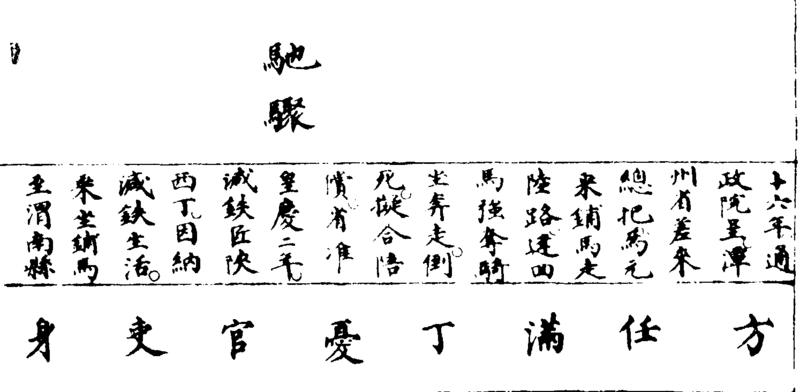 馳驟
十六年通
政院呈潭
州省差來
總把馬元
來鋪馬走
陸路遞四
馬強奪騎
坐奔走倒
死擬合陪
償省准
皇慶二年
誠鉄匠陜
西丁因納
減鉄生活
來坐鋪馬
至渭南縣
方任滿丁憂官吏身